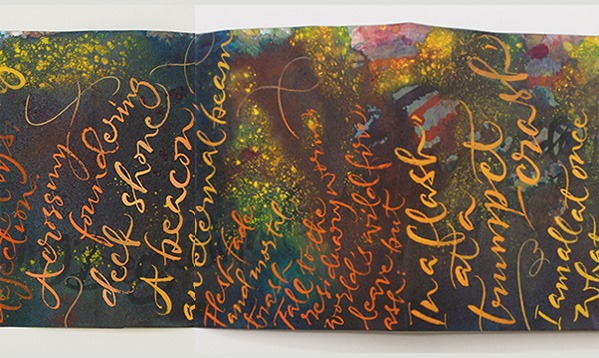 days,
jection.
Across my
foundering
deck shone
A beacon,
an eternal beam.
Flesh fade
and mortal
trash
Fall to the
residuary worm
world's wildfire,
leave but
ash:
In a flash,
at a
trumpet
crash,
I am all at once
what